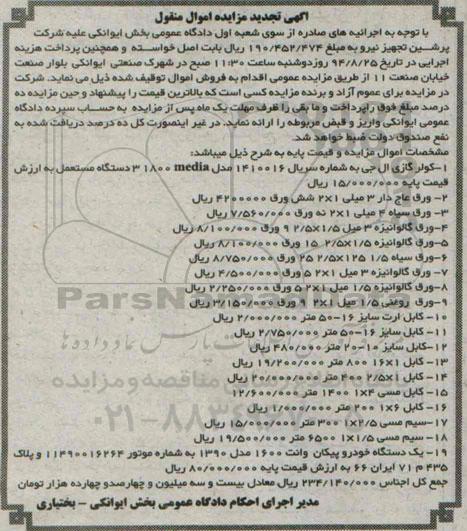 آگهی تجدید مزایده اموال منقول
با توجه به اجرائیه های صادره از سوی شعبه اول دادگاه عمومی بخش ایوانکی علیه شرکت
پرشین تجهیز نیرو به مبلغ ۱۹۰/۴۵۲/۴۷۴ ریال بابت اصل خواسته و همچنین پرداخت هزینه
اجرایی در تاریخ ۹۴/۸/۲۵ روز دوشنبه ساعت ۱۱:۳۰ صبح در شهرک صنعتی ایوانکی بلوار صنعت
خیابان صنعت ۱۱ از طریق مزایده عمومی اقدام به فروش اموال توقیف شده ذیل می نماید. شرکت
در مزایده برای عموم آزاد و برنده مزایده کسی است که بالاترین قیمت را پیشنهاد و حین مزایده ده
درصد مبلغ فوق را پرداخت و ما بقی را ظرف مهلت یک ماه پس از مزایده به حساب سپرده دادگاه
عمومی ایوانکی واریز و قبض مربوطه را ارائه نماید. در غیر اینصورت کل ده درصد دریافت شده به
نفع صندوق دولت ضبط خواهد شد.
مشخصات اموال مزایده و قیمت پایه به شرح ذیل میباشد:
۱-کولر گازی ال جی به شماره سریال ۱۴۱۰۰۱۶ مدل media ۱۸۰۰ ۳ دستگاه مستعمل به ارزش
قیمت پایه ۱۵/۰۰۰/۰۰۰ ریال
۲- ورق عاج دار ۳ میلی ۱×۲ شش ورق ۴۲۰۰۰۰۰ ریال
۳- ورق سیاه ۴ میلی ۱×۲ نه ورق ۷/۵۶۰/۰۰۰ ریال
۴-ورق گالوانیزه ۳ میل ۱/۵×۲/۵ ۹ ورق ۸/۱۰۰/۰۰۰ ریال
۵-ورق گالوانیزه ۱/۵×۲/۵ ۱۵ ورق ۸/۱۰۰/۰۰۰ ریال
۶-ورق سیاه ۱/۵ ۱۲۵×۲/۵ ورق ۸/۷۵۰/۰۰۰ ریال
۷- ورق گالوانیزه ۳ میل ۱×۲ ۵ ورق ۴/۵۰۰/۰۰۰ ریال
۸-ورق گالوانیزه ۱/۵ میل ۱×۲ ۵ ورق ۲/۲۵۰/۰۰۰ ریال
۹-ورق روغنی ۱/۵ میل ۱×۲ ۹ ورق ۳/۱۵۰/۰۰۰ ریال
۱۰- کابل ارت سایز ۱۶-۵۰ متر ۲/۰۰۰/۰۰۰ ریال
۱۱- کابل سایز ۱۶-۵۰ متر ۲/۷۵۰/۰۰۰ ریال
۱۲-کابل سایز ۱۰-۲۰ متر ۴۸۰/۰۰۰ ریال
۱۳- کابل ۱×۱۶ ۸۰۰ متر ۱۹/۲۰۰/۰۰۰ ریال
۱۴- کابل ۱×۲/۵ ۴۰۰ متر ۲۰/۰۰۰/۰۰۰ ریال
۱۵- کابل مسی ۴×۱ ۱۴۰۰ متر ۱۲/۶۰۰/۰۰۰
۱۶- کابل ۶×۱ ۲۰۰ متر ۲/۰۰۰/۰۰۰ ریال
۱۷-سیم مسی ۲/۵×۱ ۳۰۰ متر ۱۵/۰۰۰/۰۰۰ ریال
۱۸- سیم مسی ۱/۵×۱ ۶۵۰۰ متر ۱۹/۵۰۰/۰۰۰ ریال
۱۹- یک دستگاه خودرو پیکان وانت ۱۶۰۰ مدل ۱۳۹۰ به شماره موتور ۱۱۴۹۰۰۱۶۲۶۴ و پلاک
۴۳۵ م ۷۱ ایران ۶۶ به ارزش قیمت پایه ۸۰/۰۰۰/۰۰۰ ریال
جمع کل اجناس ۲۳۴/۱۴۰/۰۰۰ ریال معادل بیست و سه میلیون و چهارصد و چهارده هزار تومان
مدیر اجرای احکام دادگاه عمومی بخش ایوانکی - بختیاری